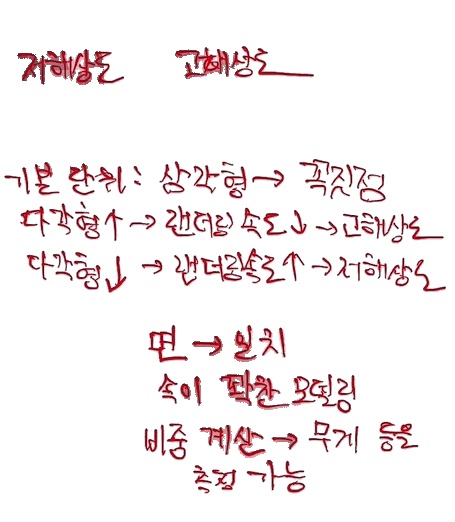 저해상도 고해상도
기본 단위: 삼각형 → 꼭짓점
다각형↑ → 랜더링 속도↓ → 고해상도
다각형↓ → 랜더링속도↑ → 저해상도
면 → 일치
속이 꽉찬 모델링
비중 계산 → 무게 등을
측정 가능